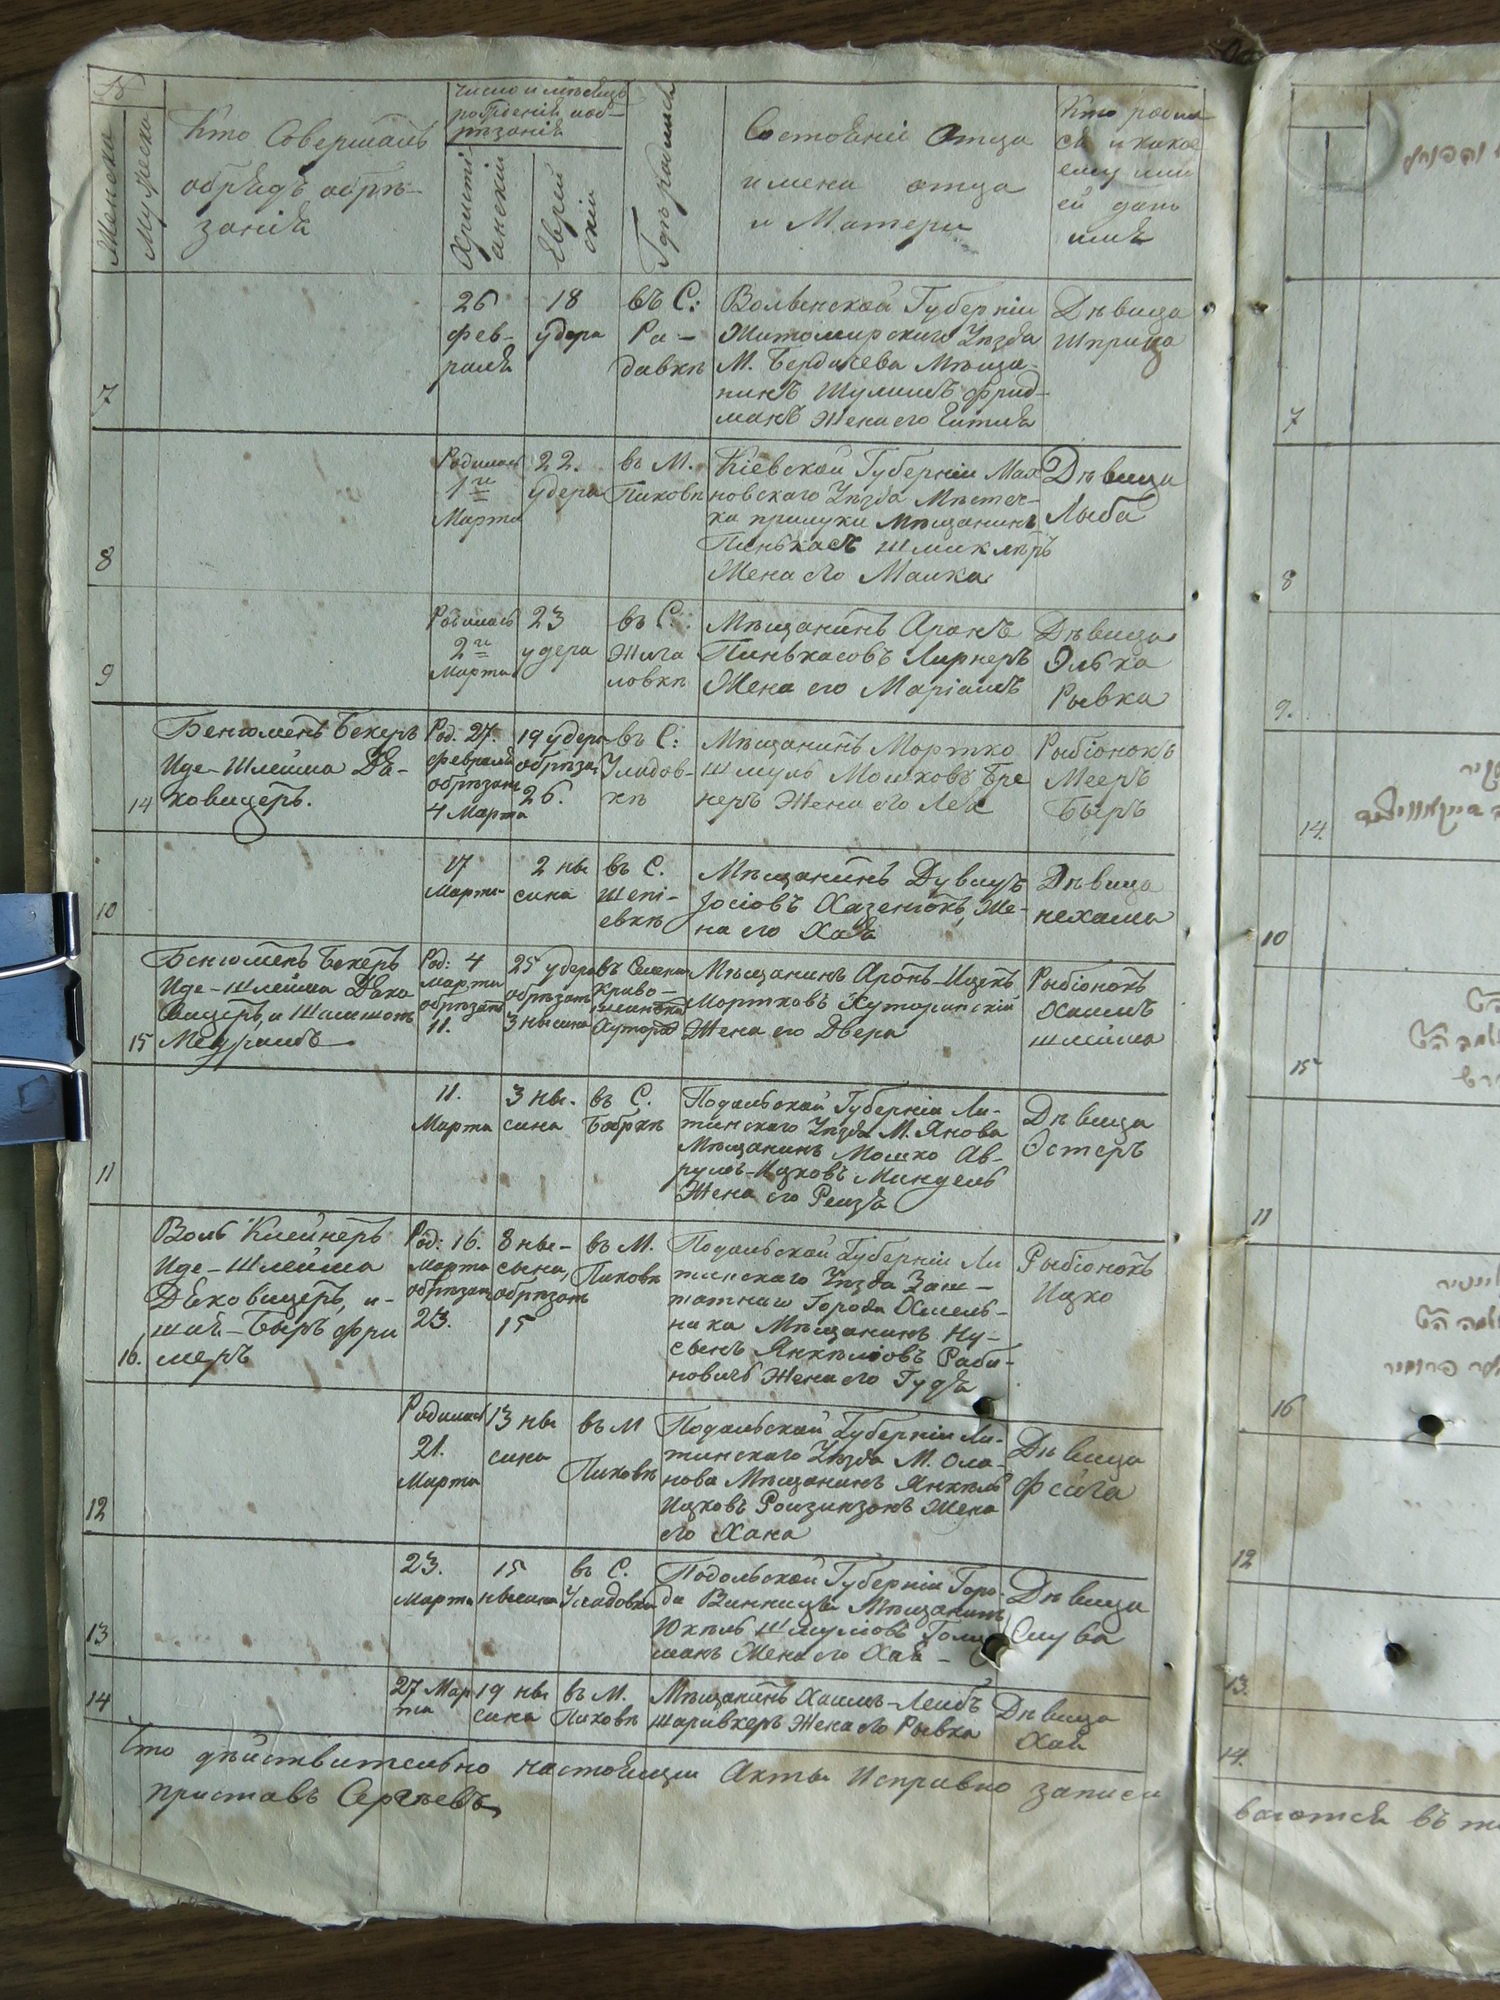 Женска
Мужеска
Кто Совершалъ
обрядъ обрѣ-
занія
Число и мѣсяцъ
рожденія и об-
рѣзанія
Христі-
анскій
Еврей
скій
Гдѣ родился
Состояніе Отца
имена отца
и Матери
Кто родил-
ся и какое
ему или
ей дано
имя
7
26
фев-
раля
18
удера
въ С:
Ра-
давкѣ
Волынской Губерніи
Житомирскаго Уѣзда
М. Бердичева Мѣща-
нинъ Шулимъ Фрид-
манъ Жена его Гитля
Дѣвица
Шприца
8
Родилась
1го
Марта
22.
удера
въ М.
Пиковѣ
Кіевской Губерніи Мах
новскаго Уѣзда Мѣстеч-
ка прилуки Мѣщанинъ
Пинькасъ Шмиклѣръ
Жена его Малка
Дѣвица
Лыба
9
Родилась
2го
Марта
23
удера
въ С:
Жига
ловкѣ
Мѣщанинъ Аронъ
Пинькасовъ Лирнеръ
Жена его Маріамъ
Дѣвица
Элька
Рывка
14
Бенюменъ Бекеръ
Иде-Шлейма Дя-
ковицеръ.
Род: 27.
февраля
обрѣзанъ
4 Марта
19 удера
обрѣза.
26.
въ С:
Уладов-
кѣ
Мѣщанинъ Мортко
Шмуль Мошковъ Бре
неръ Жена его Лея
Рыбіонокъ
Мееръ
Быръ
10
17
Марта
2 ны
сина
въ С.
Шепі-
евкѣ
Мѣщанинъ Дувидъ
Іосіовъ Хазенюкъ, Же-
на его Хая
Дѣвица
нехама
15
Бенюменъ Бекеръ
Иде-Шлейма Дяко
вицеръ, и
Род: 4
марта
обрѣзанъ
11.
25 удера
обрѣзанъ
3 нысина
въ Селени
Криво-
Хутора
Мѣщанинъ Аронъ-Ицекъ
Мортковъ Хуторянскій
Жена его Двера
Рыбіонокъ
Хаимъ
Шлейма
11
11.
Марта
3 ны-
сина
въ С.
Бобркѣ
Подольской Губерніи Ли-
тинскаго Уѣзда М. Янова
Мѣщанинъ Мошко Ав-
румъ-Ицковъ Миндель
Жена его Рейзя
Дѣвица
Эстеръ
16.
Воль Клейнеръ
Иде-Шлейма
Дяковицеръ, и-
Быръ Фри
меръ
Род: 16.
Марта
обрѣзанъ
23.
8 ны-
сына,
обрѣзанъ
15
въ М.
Пиковѣ
Подольской Губерніи Ли
тинскаго Уѣзда Заш-
татнаго Города Хмель-
ника Мѣщанинъ Ну-
сынъ Янкѣліовъ Раби-
новичъ Жена его Гудя
Рыбіонокъ
Ицко
12
Родилась
21.
Марта
13 ны
сина
въ М
Пиковѣ
Подольской Губерніи Ли-
тинскаго Уѣзда М. Ула-
нова Мѣщанинъ Янкѣль
Ицковъ Ройзинзонъ Жена
его Хана
Дѣвица
Фейга
13
23.
Марта
15
нысина
въ С.
Уладовки
Подольской Губерніи Горо-
да Винницы Мѣщанинъ
Юкѣль Шмуліовъ
манъ Жена его Хая-
Дѣвица
Слува
14
27 Мар
та
19 ны
сина
въ М.
Пиковѣ
Мѣщанинъ Хаимъ-Лейбъ
Шаривкеръ Жена его Рывка
Дѣвица
Хая
Что дѣйствительно настоящіи Акты Исправно записи
приставъ Сергѣевъ
7
8
9.
14.
10
15
11
16
12
13.
14.
ваются въ